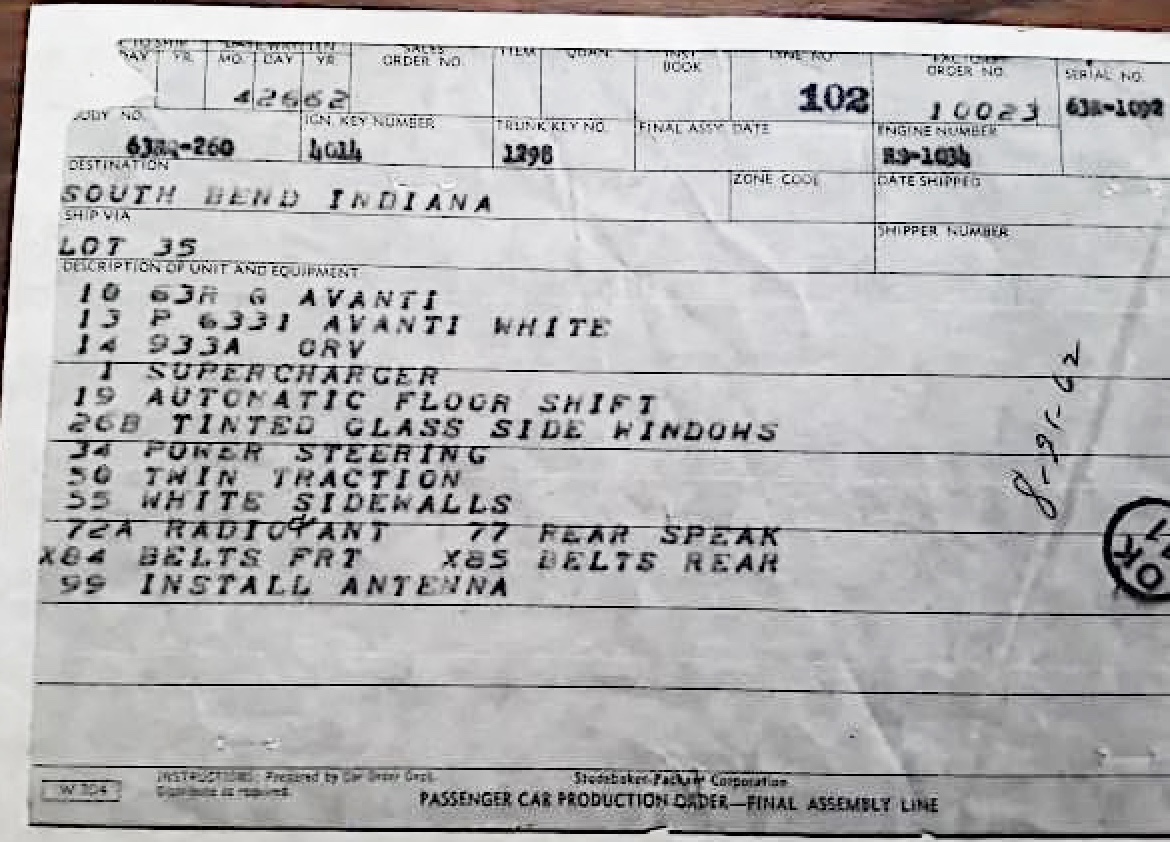 DAY YR. MO. DAY YR. SALES ORDER NO. ITEM QUAN. INST BOOK LINE NO. FACTORY ORDER NO. SERIAL NO.
42662 102 10023 63R-1092
BODY NO. IGN. KEY NUMBER TRUNK KEY NO. FINAL ASSY. DATE ENGINE NUMBER
63RQ-260 4014 1298 RS-1034
DESTINATION ZONE CODE DATE SHIPPED
SOUTH BEND INDIANA
SHIP VIA SHIPPER NUMBER
LOT 35
DESCRIPTION OF UNIT AND EQUIPMENT
10 63R Q AVANTI
13 P 6331 AVANTI WHITE
14 933A ORV
1 SUPERCHARGER
19 AUTOMATIC FLOOR SHIFT
26B TINTED GLASS SIDE WINDOWS
34 POWER STEERING
50 TWIN TRACTION
55 WHITE SIDEWALLS
72A RADIO&ANT 77 REAR SPEAK
X84 BELTS FRT X85 BELTS REAR
99 INSTALL ANTENNA
8-31-62
OK
W 704 INSTRUCTIONS: Prepared by Car Order Dept. Studebaker-Packard Corporation
Distribute as required. PASSENGER CAR PRODUCTION ORDER—FINAL ASSEMBLY LINE